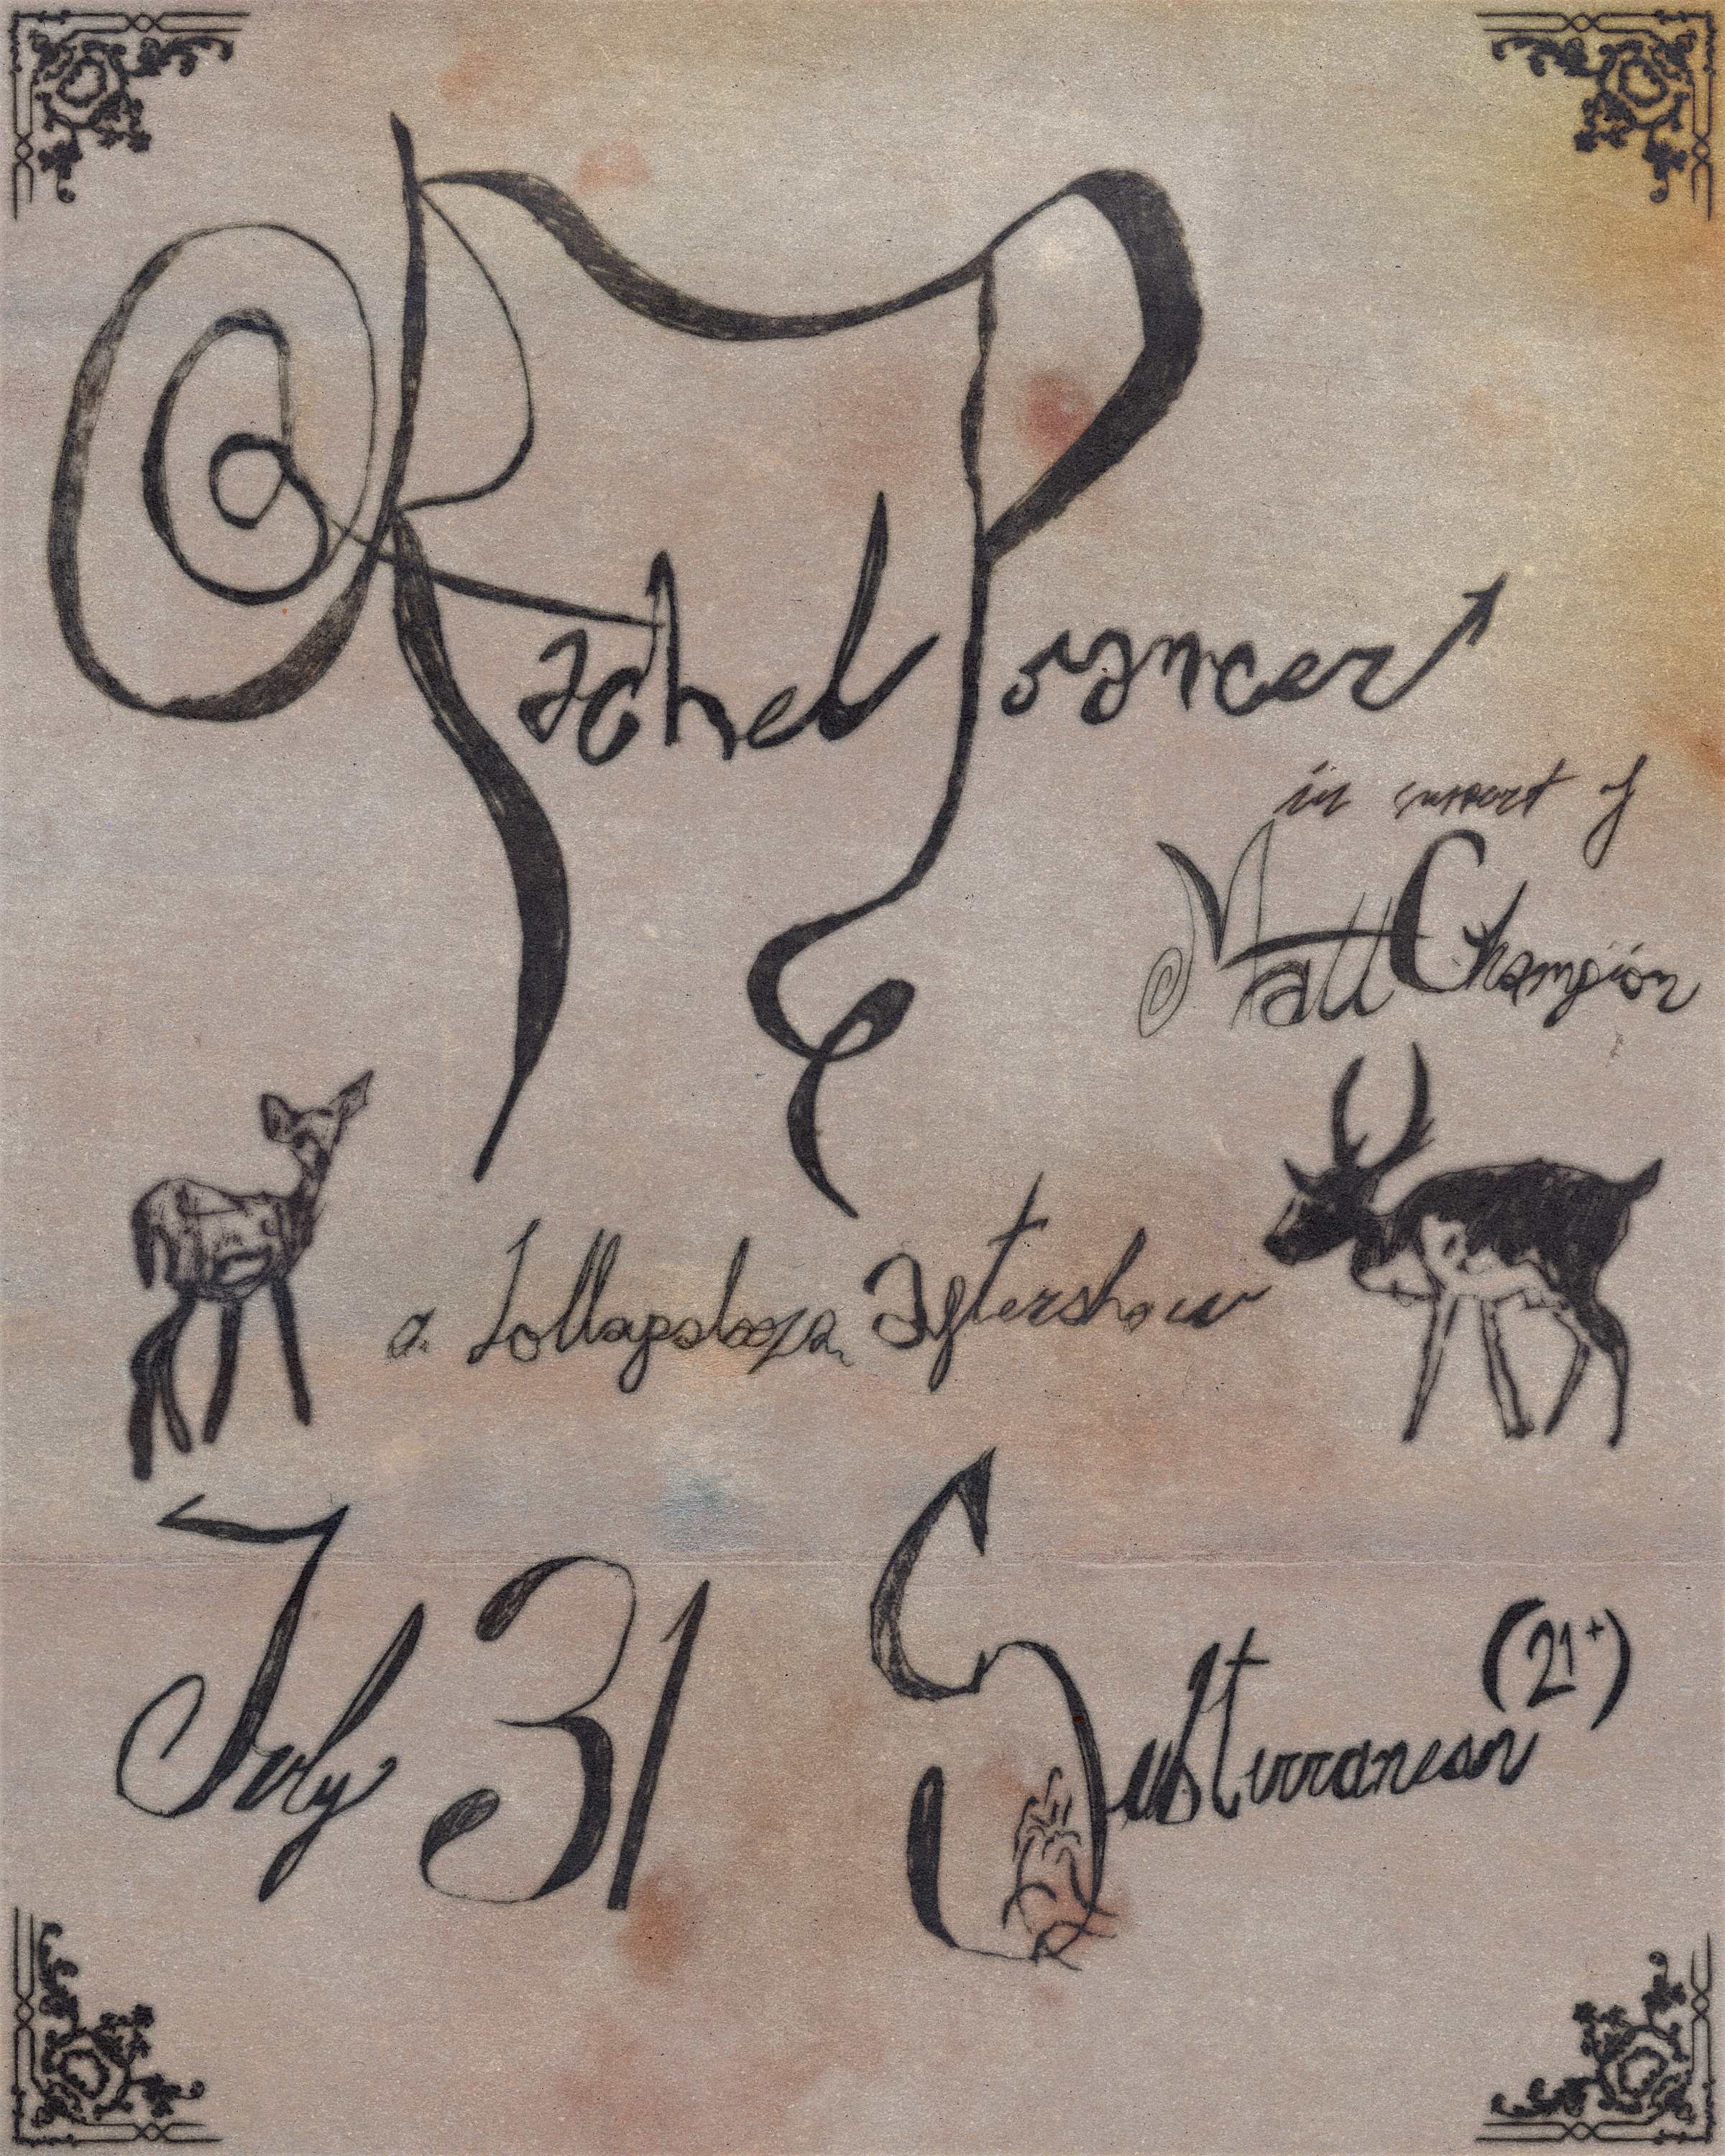 Rachel Prancer
in support of
Matt Champion
a Lollapalooza aftershow
July 31
Subterranean (21+)